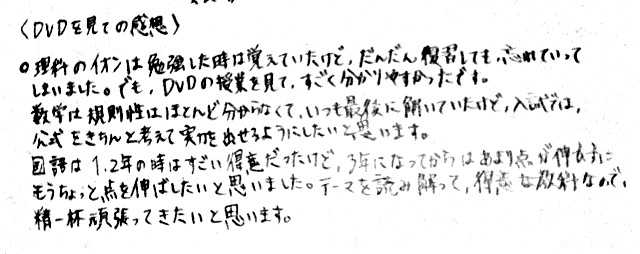 〈DVDを見ての感想〉
○理科のイオンは勉強した時は覚えていたけど、だんだん復習しても忘れていって
しまいました。でも、DVDの授業を見て、すごく分かりやすかったです。
数学は規則性はほとんど分からなくて、いつも最後に解いていたけど、入試では、
公式をきちんと考えて実力を出せるようにしたいと思います。
国語は1.2年の時はすごい得意だったけど、3年になってからはあまり点が伸びずに
もうちょっと点を伸ばしたいと思いました。テーマを読み解って、得意な教科なので、
精一杯頑張ってきたいと思います。